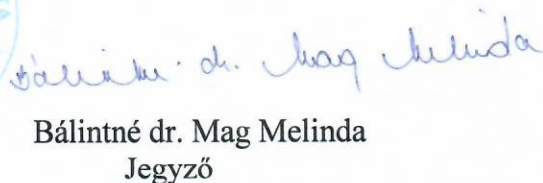 Bálintné dr. Mag Melinda
Bálintné dr. Mag Melinda
Jegyző